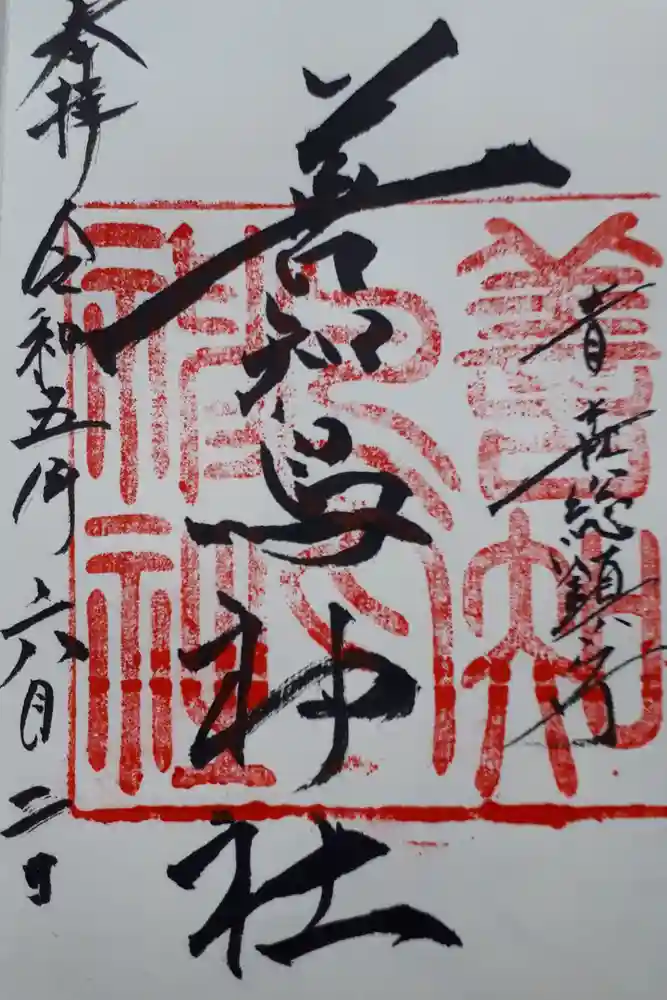 青森総鎮守
善知鳥神社
奉拝 令和五年六月二日
善知鳥神社